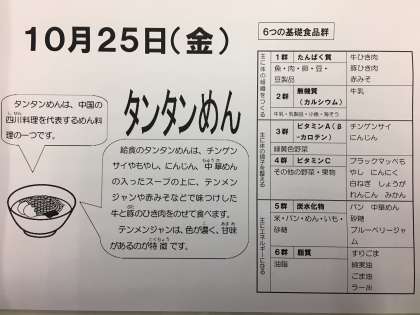 10月25日(金)
タンタンめん
タンタンめんは、中国の
四川料理を代表するめん料
理の一つです。
給食のタンタンめんは、チンゲン
サイやもやし、にんじん、中華めん
の入ったスープの上に、テンメン
ジャンや赤みそなどで味つけした
牛と豚のひき肉をのせて食べます。
テンメンジャンは、色が濃く、甘味
があるのが特徴です。
6つの基礎食品群
主に体の組織をつくる
1群 たんぱく質
魚・肉・卵・豆・
豆製品
牛ひき肉
豚ひき肉
赤みそ
2群 無機質
(カルシウム)
牛乳・乳製品・小魚・海そう
牛乳
主に体の調子を整える
3群 ビタミンA(β
-カロテン)
緑黄色野菜
チンゲンサイ
にんじん
4群 ビタミンC
その他の野菜・果物
ブラックマッペも
やし にんにく
白ねぎ しょうが
れんこん みかん
主にエネルギーになる
5群 炭水化物
米・パン・めん・いも・
砂糖
パン 中華めん
砂糖
ブルーベリージャ
ム
6群 脂質
油脂
すりごま
綿実油
ごま油
ラー油